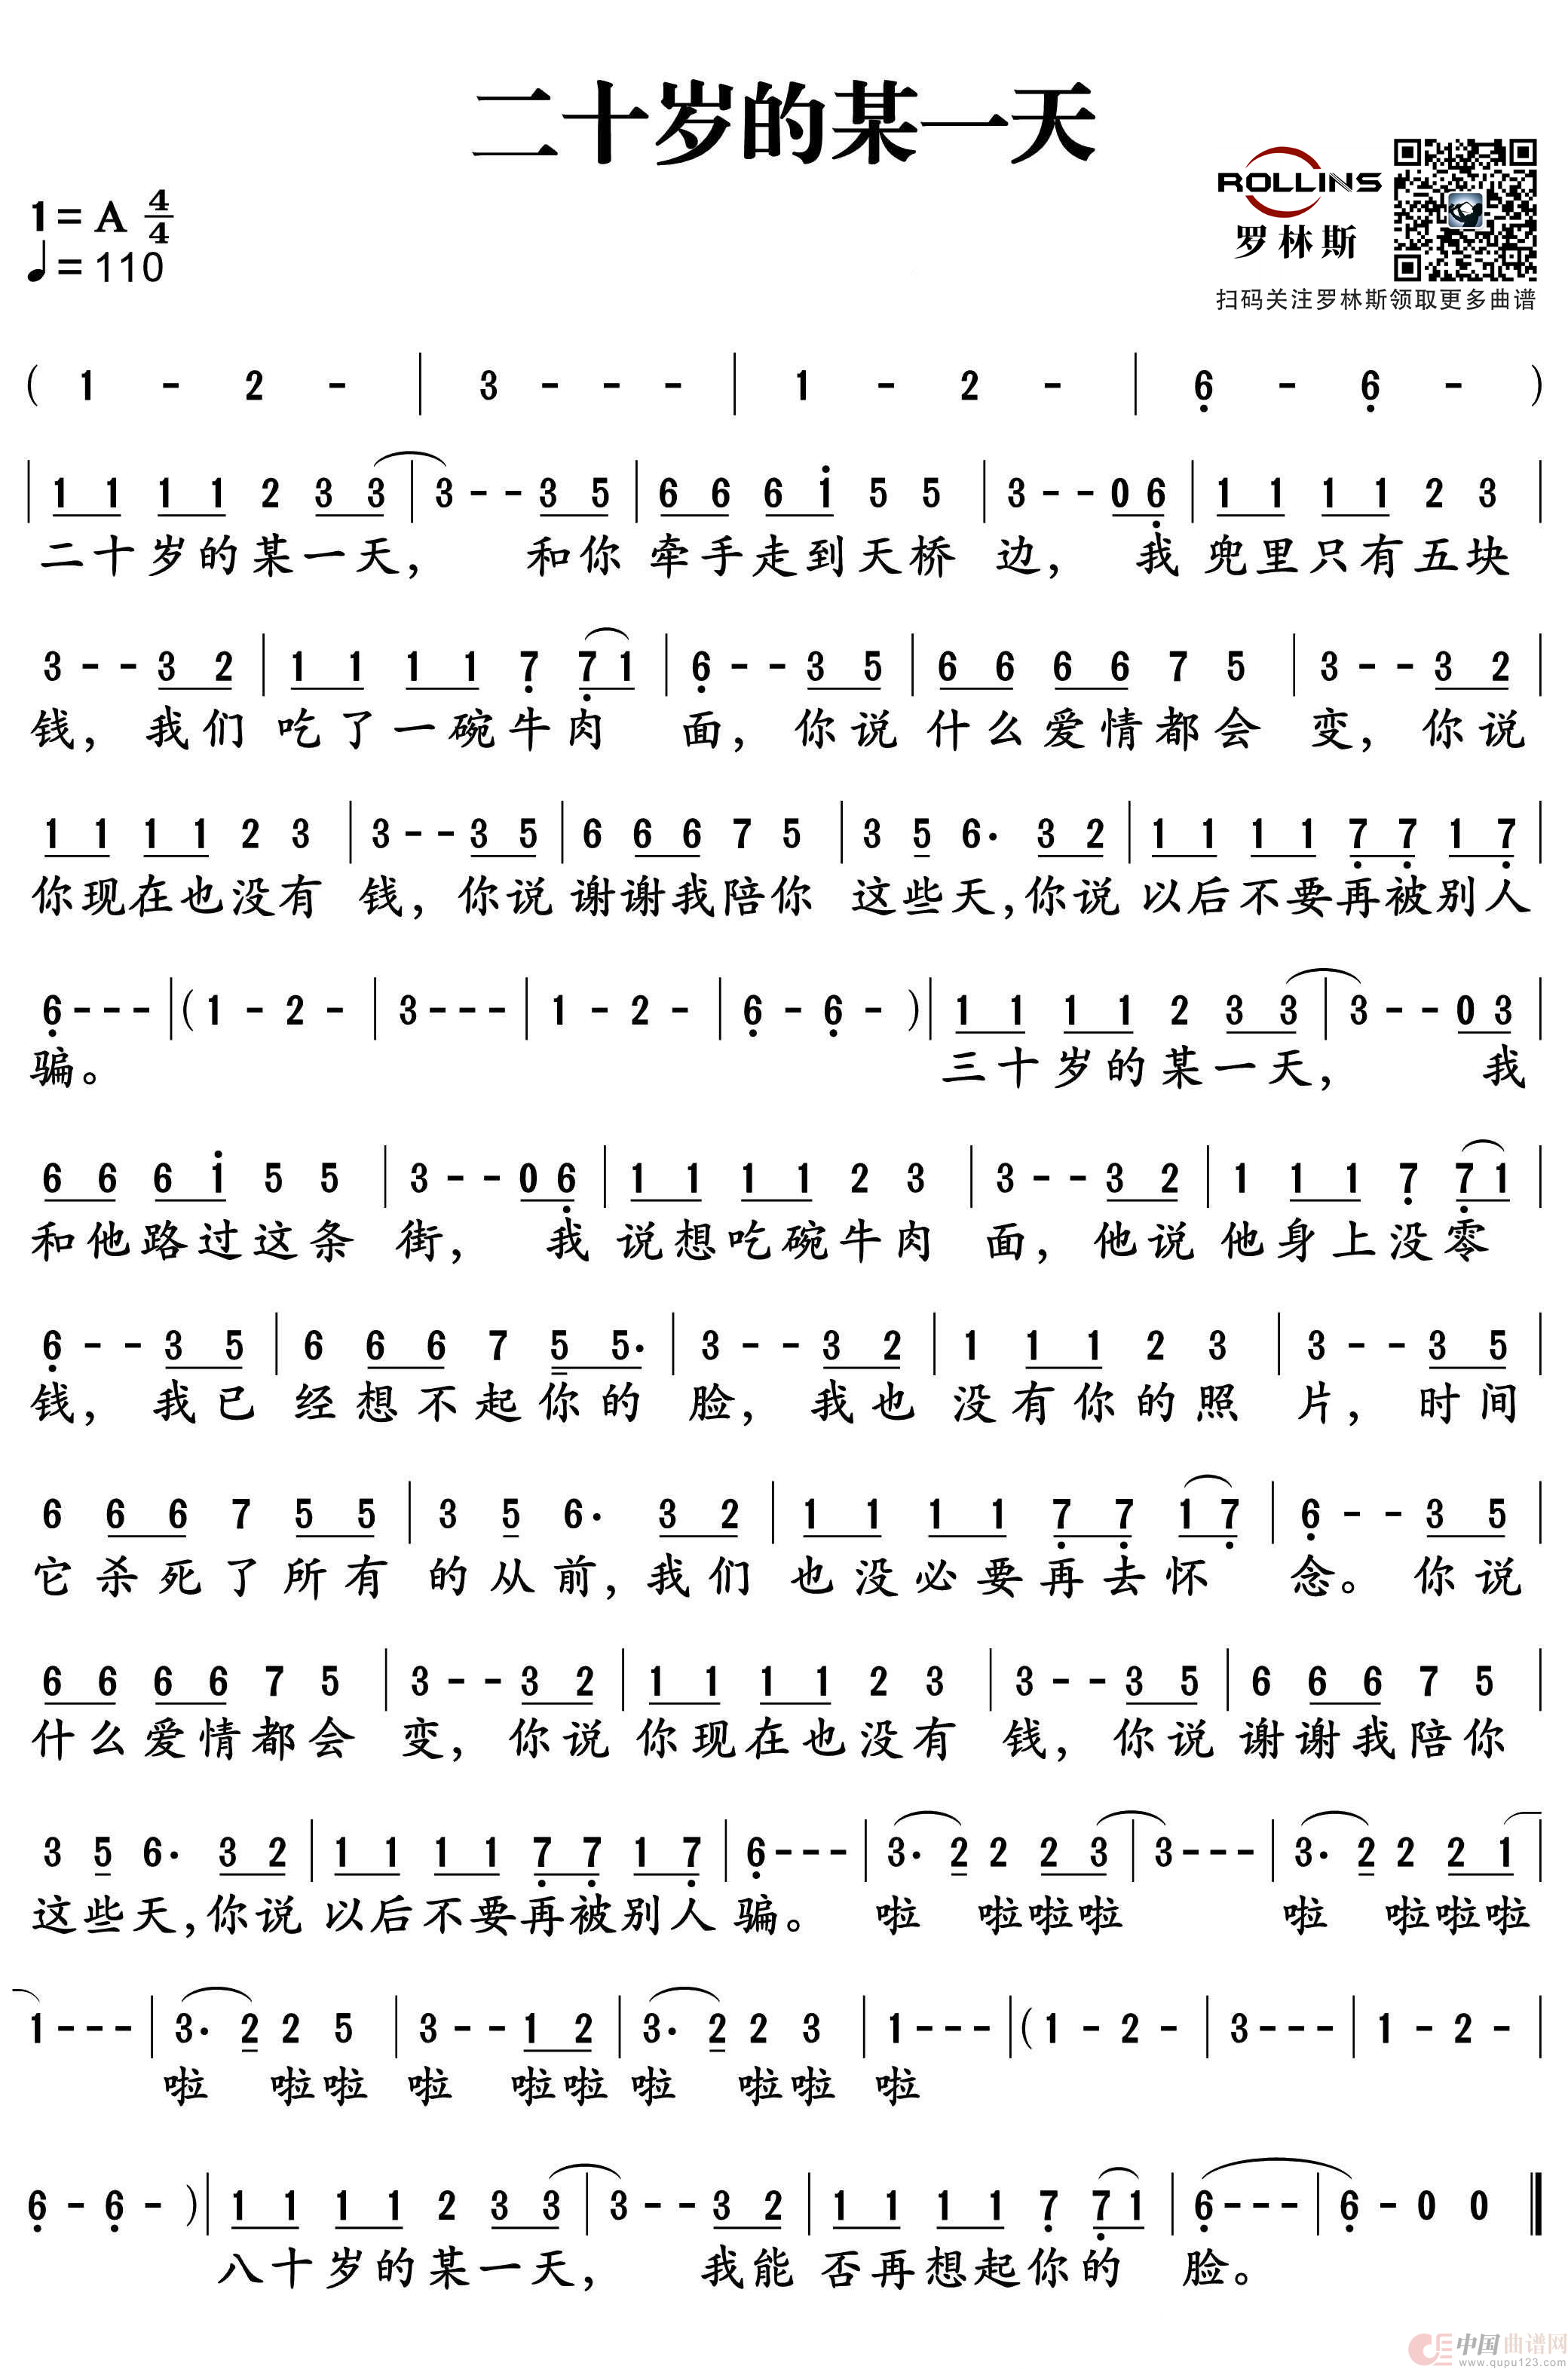 二十岁的某一天
ROLLINS
罗林斯
扫码关注罗林斯领取更多曲谱
1=A 4/4
♩=110
( 1 - 2 - | 3 - - - | 1 - 2 - | 6̣ - 6̣ - )
| 1 1 1 1 2 3 3 | 3 - - 3 5 | 6 6 6 1̇ 5 5 | 3 - - 0 6̣ | 1 1 1 1 2 3 |
二十岁的某一天, 和你 牵手走到天桥 边, 我 兜里只有五块
3 - - 3 2 | 1 1 1 1 7̣ 7̣ 1 | 6̣ - - 3 5 | 6 6 6 6 7 5 | 3 - - 3 2 |
钱, 我们 吃了一碗牛肉 面, 你说 什么爱情都会 变, 你说
1 1 1 1 2 3 | 3 - - 3 5 | 6 6 6 7 5 | 3 5 6· 3 2 | 1 1 1 1 7̣ 7̣ 1 7̣ |
你现在也没有 钱, 你说 谢谢我陪你 这些天,你说 以后不要再被别人
6̣ - - - | ( 1 - 2 - | 3 - - - | 1 - 2 - | 6̣ - 6̣ - ) | 1 1 1 1 2 3 3 | 3 - - 0 3 |
骗。 三十岁的某一天, 我
6 6 6 1̇ 5 5 | 3 - - 0 6̣ | 1 1 1 1 2 3 | 3 - - 3 2 | 1 1 1 7̣ 7̣ 1 |
和他路过这条 街, 我 说想吃碗牛肉 面, 他说 他身上没零
6̣ - - 3 5 | 6 6 6 7 5 5· | 3 - - 3 2 | 1 1 1 2 3 | 3 - - 3 5 |
钱, 我已 经想不起你的 脸, 我也 没有你的照 片, 时间
6 6 6 7 5 5 | 3 5 6· 3 2 | 1 1 1 1 7̣ 7̣ 1 7̣ | 6̣ - - 3 5 |
它杀死了所有 的从前,我们 也没必要再去怀 念。 你说
6 6 6 6 7 5 | 3 - - 3 2 | 1 1 1 1 2 3 | 3 - - 3 5 | 6 6 6 7 5 |
什么爱情都会 变, 你说 你现在也没有 钱, 你说 谢谢我陪你
3 5 6· 3 2 | 1 1 1 1 7̣ 7̣ 1 7̣ | 6̣ - - - | 3· 2 2 2 3 | 3 - - - | 3· 2 2 2 1 |
这些天,你说 以后不要再被别人 骗。 啦 啦啦啦 啦 啦啦啦
1 - - - | 3· 2 2 5 | 3 - - 1 2 | 3· 2 2 3 | 1 - - - | ( 1 - 2 - | 3 - - - | 1 - 2 - |
啦 啦啦 啦 啦啦 啦 啦啦 啦
6̣ - 6̣ - ) | 1 1 1 1 2 3 3 | 3 - - 3 2 | 1 1 1 1 7̣ 7̣ 1 | 6̣ - - - | 6̣ - 0 0 ‖
八十岁的某一天, 我能 否再想起你的 脸。
中国曲谱网
www.qupu123.com